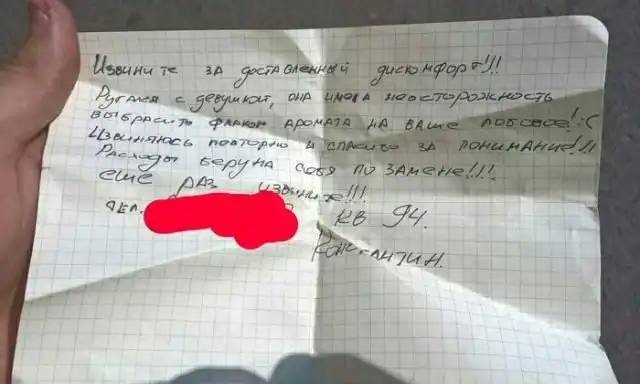 Извините за доставленный дискомфорт!!!
Ругался с девушкой, она имела неосторожность
выбросить флакон аромата на ваше лобовое! :(
Извиняюсь повторно и спасибо за понимание!!!
Расходы беру на себя по замене!!!!
еще раз извините!!!
тел. кв 94.
Константин.